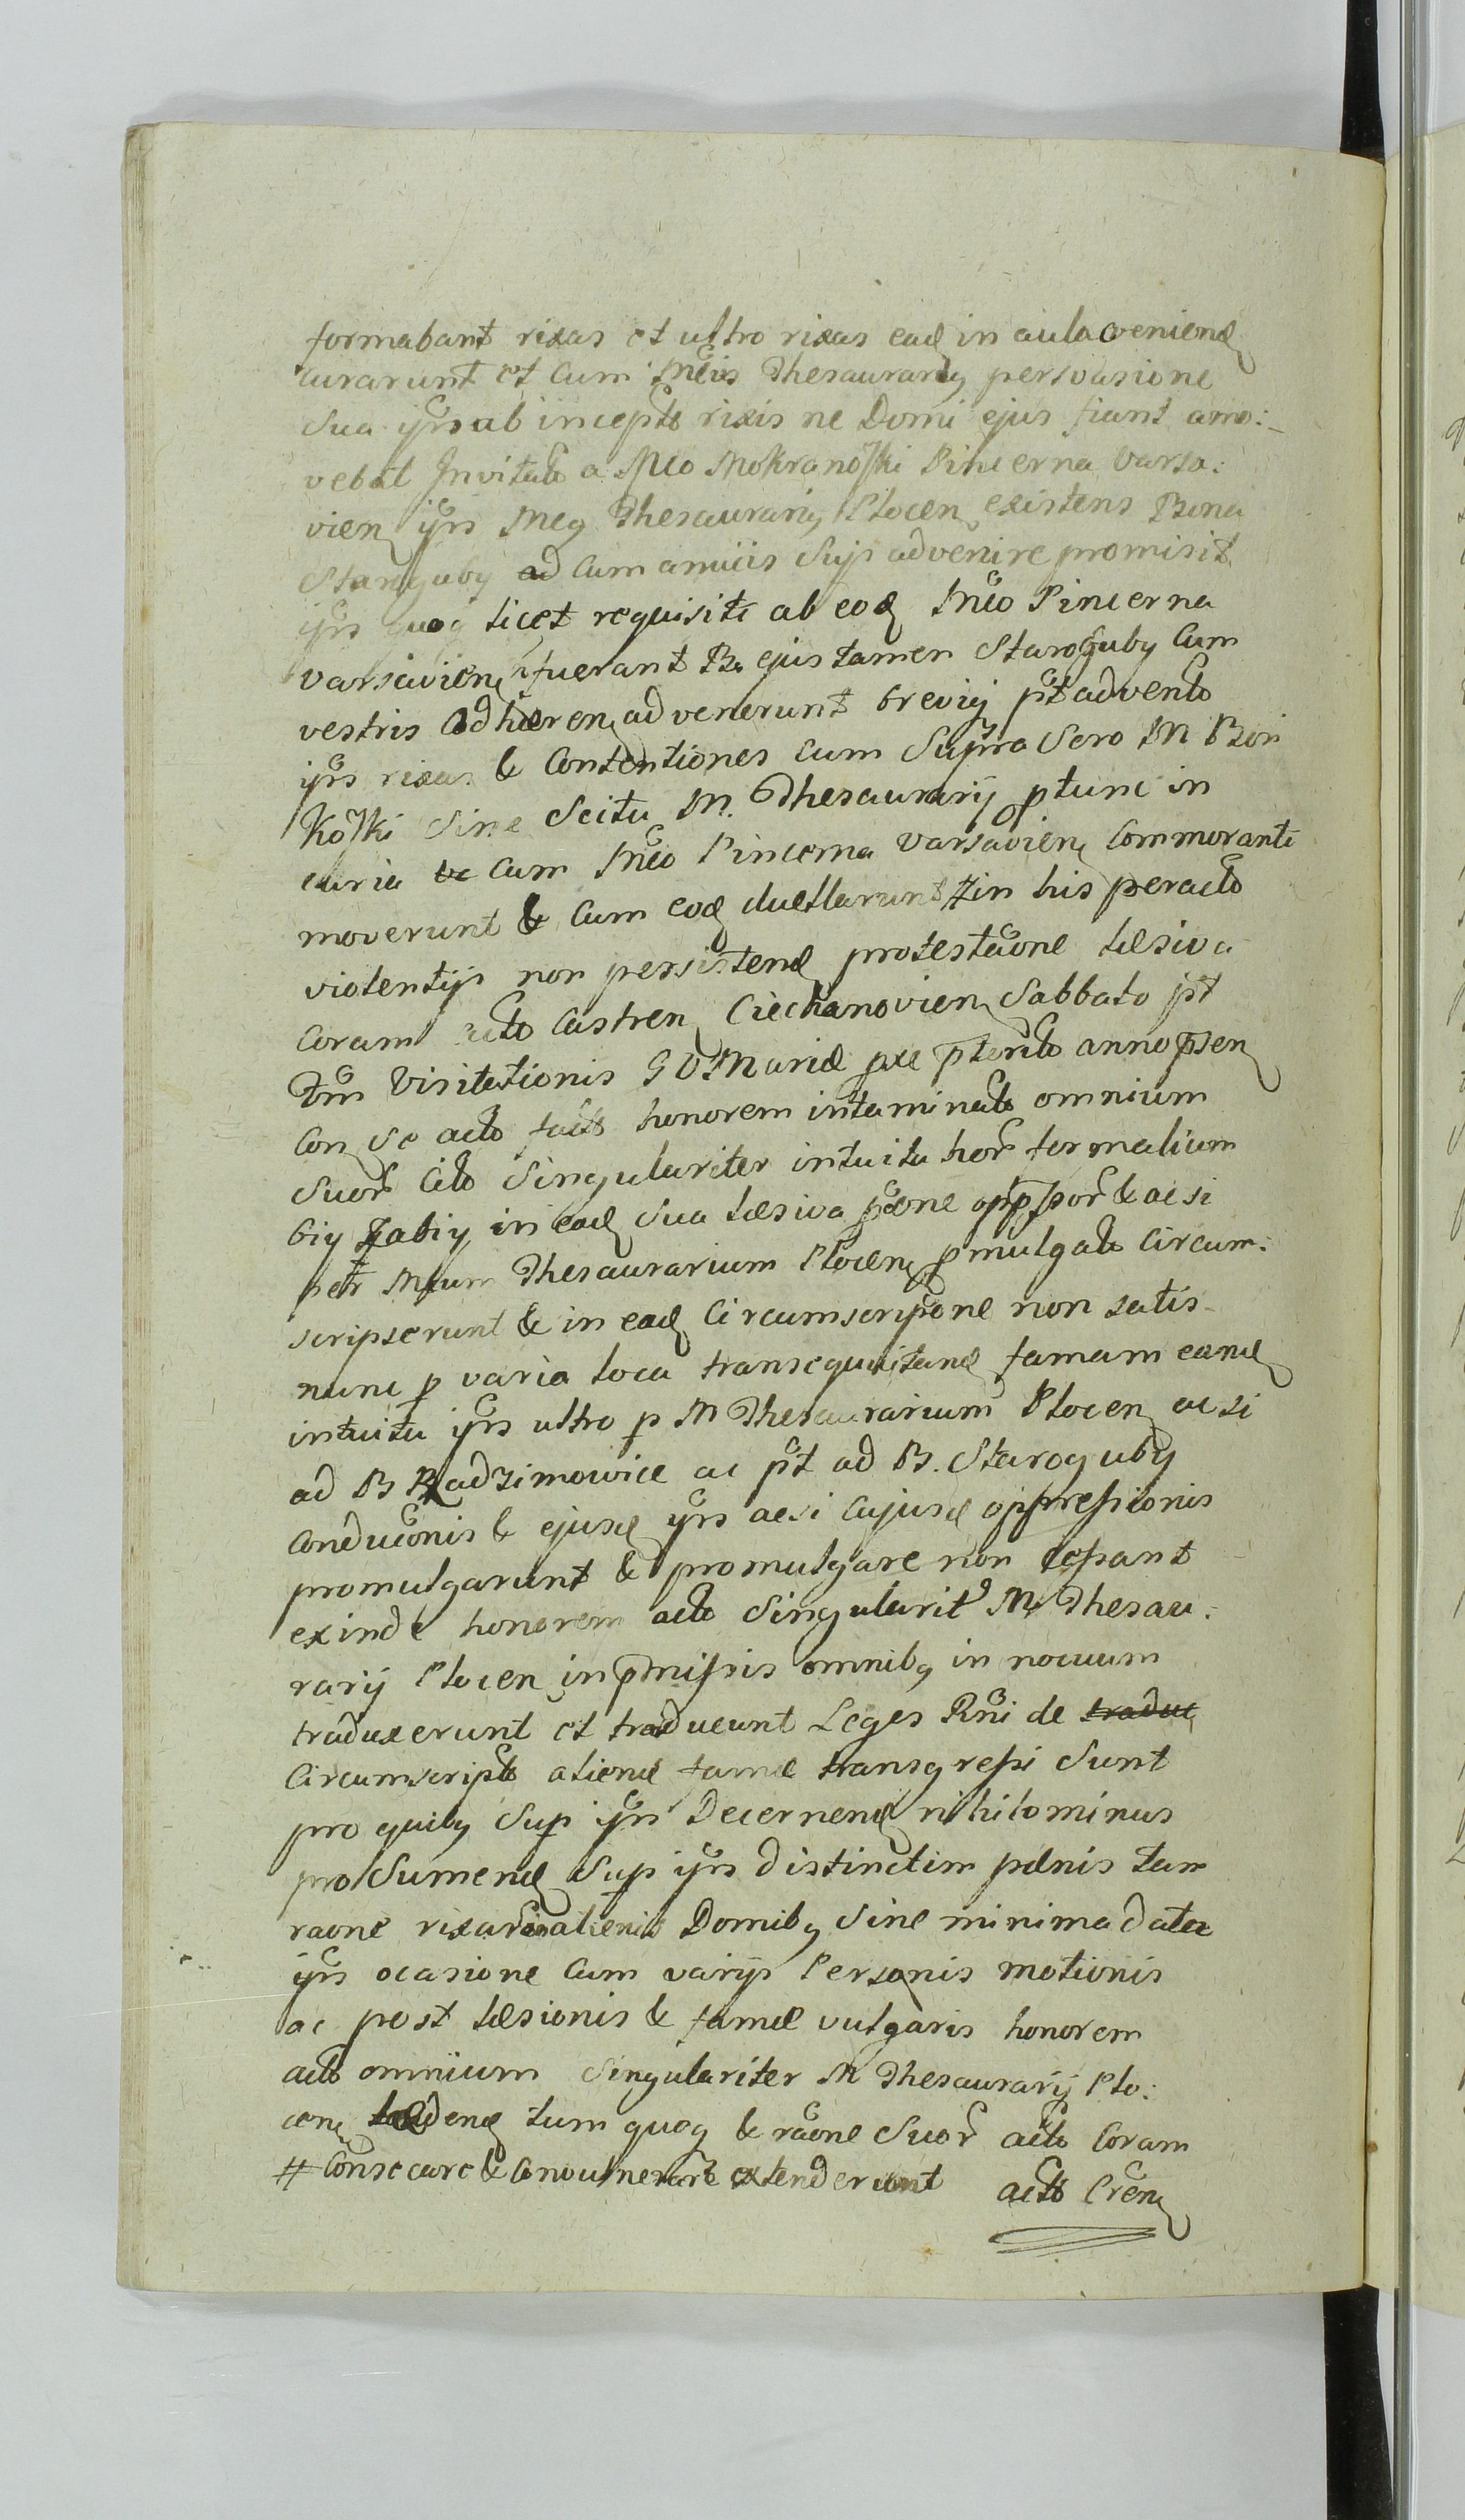 formabant rixas et ultro rixas ead in aula veniend
curarunt et Cum Mcus Thesaurarg persvasione
Sua yrs ab incepto rixis ne Domi ejus fiant amo:
vebat Invitato a Mco Mokranoski Pincerna Varsa:
vien yrs Mcg Thesaurarig Plocen existens Bona
Staroguby ad Cum amicis Suis advenire promisit
yrs quoq licet requisiti ab eod Mco Pincerna
Varsavien n fuerant B. ejus tamen Staroguby Cum
vestris Adhæren advenerunt brevig pst advento
yrs rixas & Contentiones cum Supra Scro M Bon
koski Sine Scitu M. Thesaurarij ptunc in
curia Cum Mco Pincerna Varsavien Commoranti
moverunt & Cum eod duellarunt # in his peracto
violentijs non persistend protestaone læsiva
Coram acto Castren Ciechanovien Sabbato pt
Visitationis Mariæ pxe pterito anno psen
honorem intaminato omnium
Suor Cito Singulariter intuitu hor formalium
in ead Sua læsiva & acsi
per Mcum Thesaurarium Plocen pmulgato Circum:
scripserunt & in ead Circumscripone non satis
nunc p varia loca transequitand famam eand
intuitu yrs ultro p M Thesaurarium Plocen acsi
ad B Radzimowice ac pt ad B. Staroguby
Conduconis & ejusd yrs acsi Cujusd oppressionis
promulgarunt & promulgare non cessant
exinde honorem acto Singularit M Thesau:
rarij Plocen in pmissis omnibg in nocuum
traduxerunt et traducunt Leges Rni de traduc
Circumscripto alienæ famæ transgressi Sunt
pro quibg Sup yrs Decernend nihilominus
pro Sumend Sup yrs distinctim pænis tam
raone rixar in alienis Domibg Sine minima data
yrs ocasione Cum varijs Personis motionis
ac post læsionis & famæ vulgaris honorem
acto omnium Singulariter M Thesaurarij Plo:
cen lædend tum quoq & raone Suor acto Coram
# Consecare & Convulnerare extenderunt acto Cren